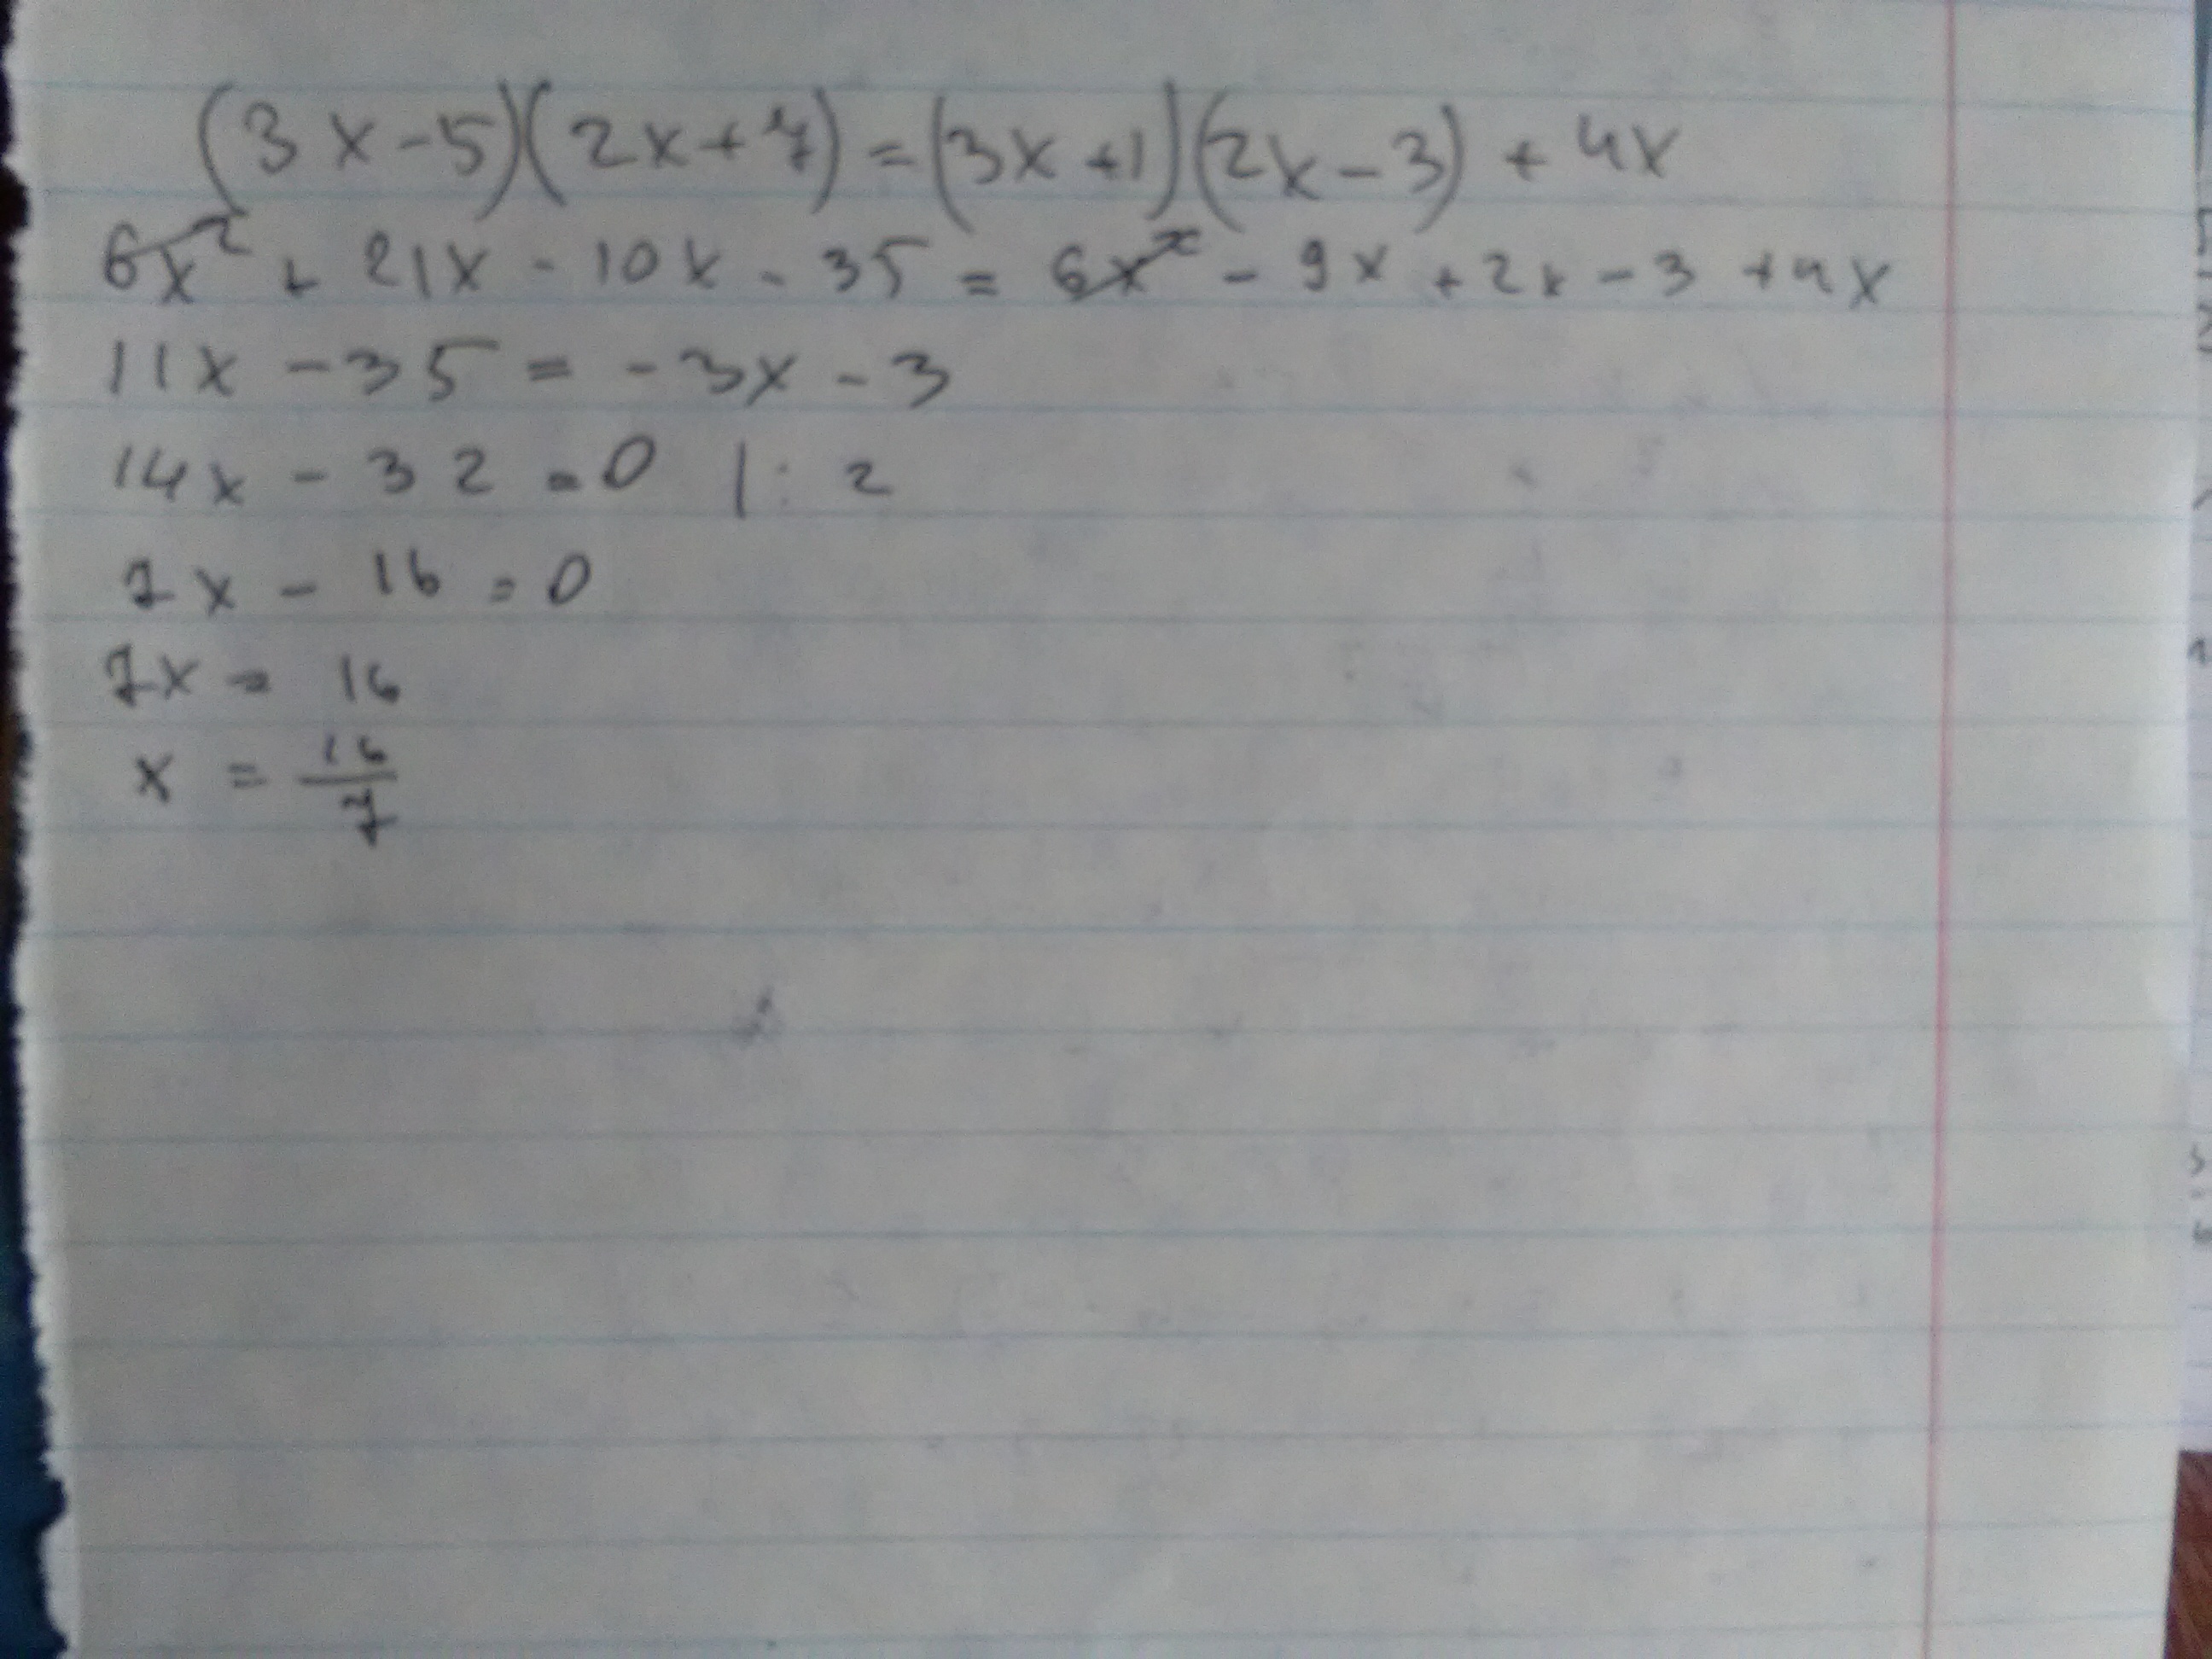 (3x-5)(2x+7)=(3x+1)(2x-3)+4x
6x²+21x-10x-35=6x²-9x+2x-3+4x
11x-35=-3x-3
14x-32=0 |:2
7x-16=0
7x=16
x=16/7